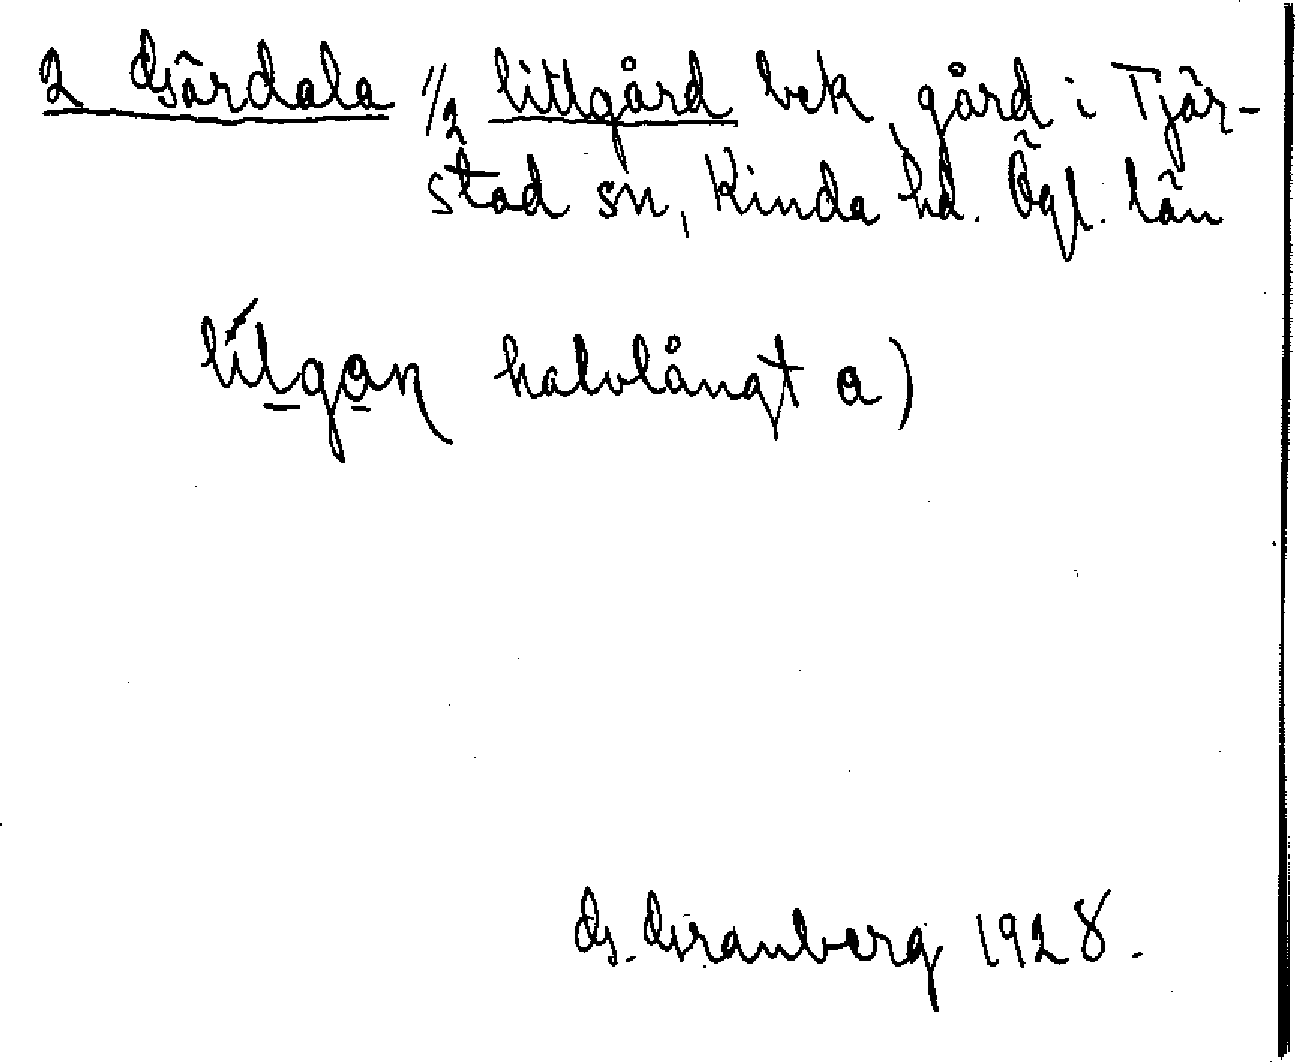 2 Gärdala 1/2 littlgård bek. gård i Tjär-
stad sn, Kinda hd. Ögl. län
lílgan halvlångt a)
G. Granberg 1928.